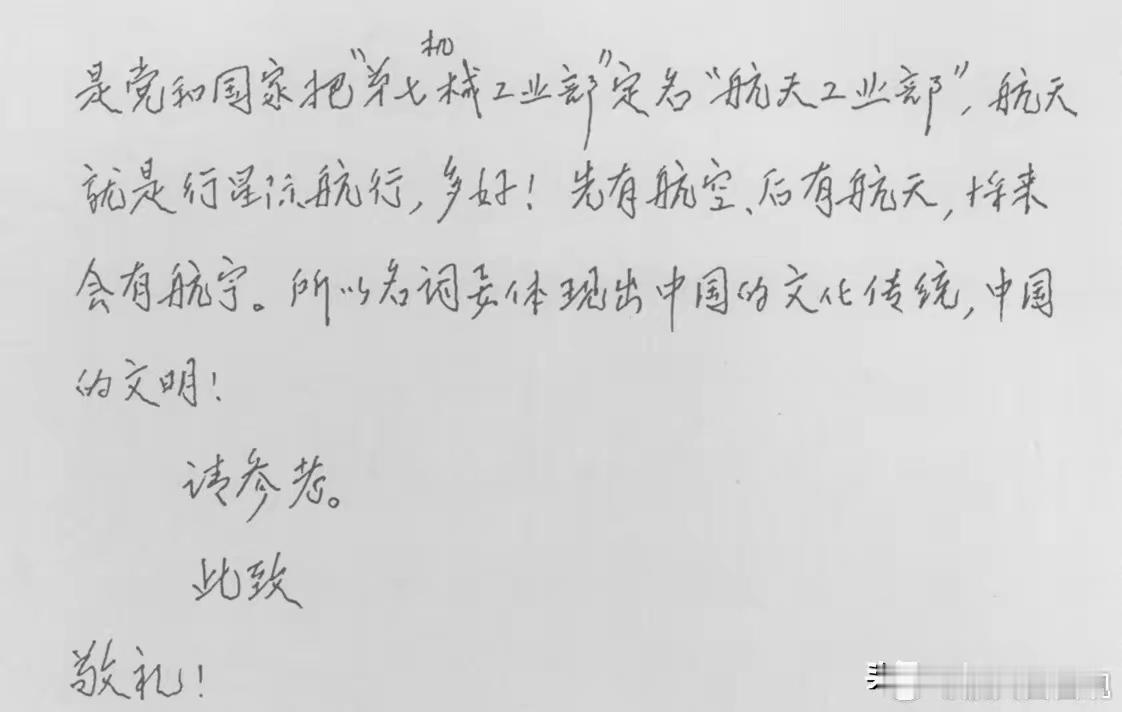 是党和国家把“第七机械工业部”定名“航天工业部”,航天
就是行星际航行,多好!先有航空、后有航天,将来
会有航宇。所以名词要体现出中国的文化传统,中国
的文明!
请参考。
此致
敬礼!